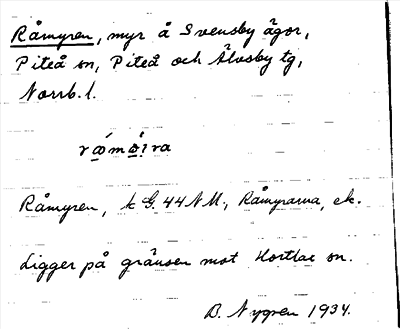 Råmyren, myr å Svensby ägor,
Piteå sn, Piteå och Älvsby tg,
Norrb. l.
Råmyren, k G. 44 NM., Råmyrarna, ek.
Ligger på gränsen mot Hortlax sn.
B. Nygren 1934.